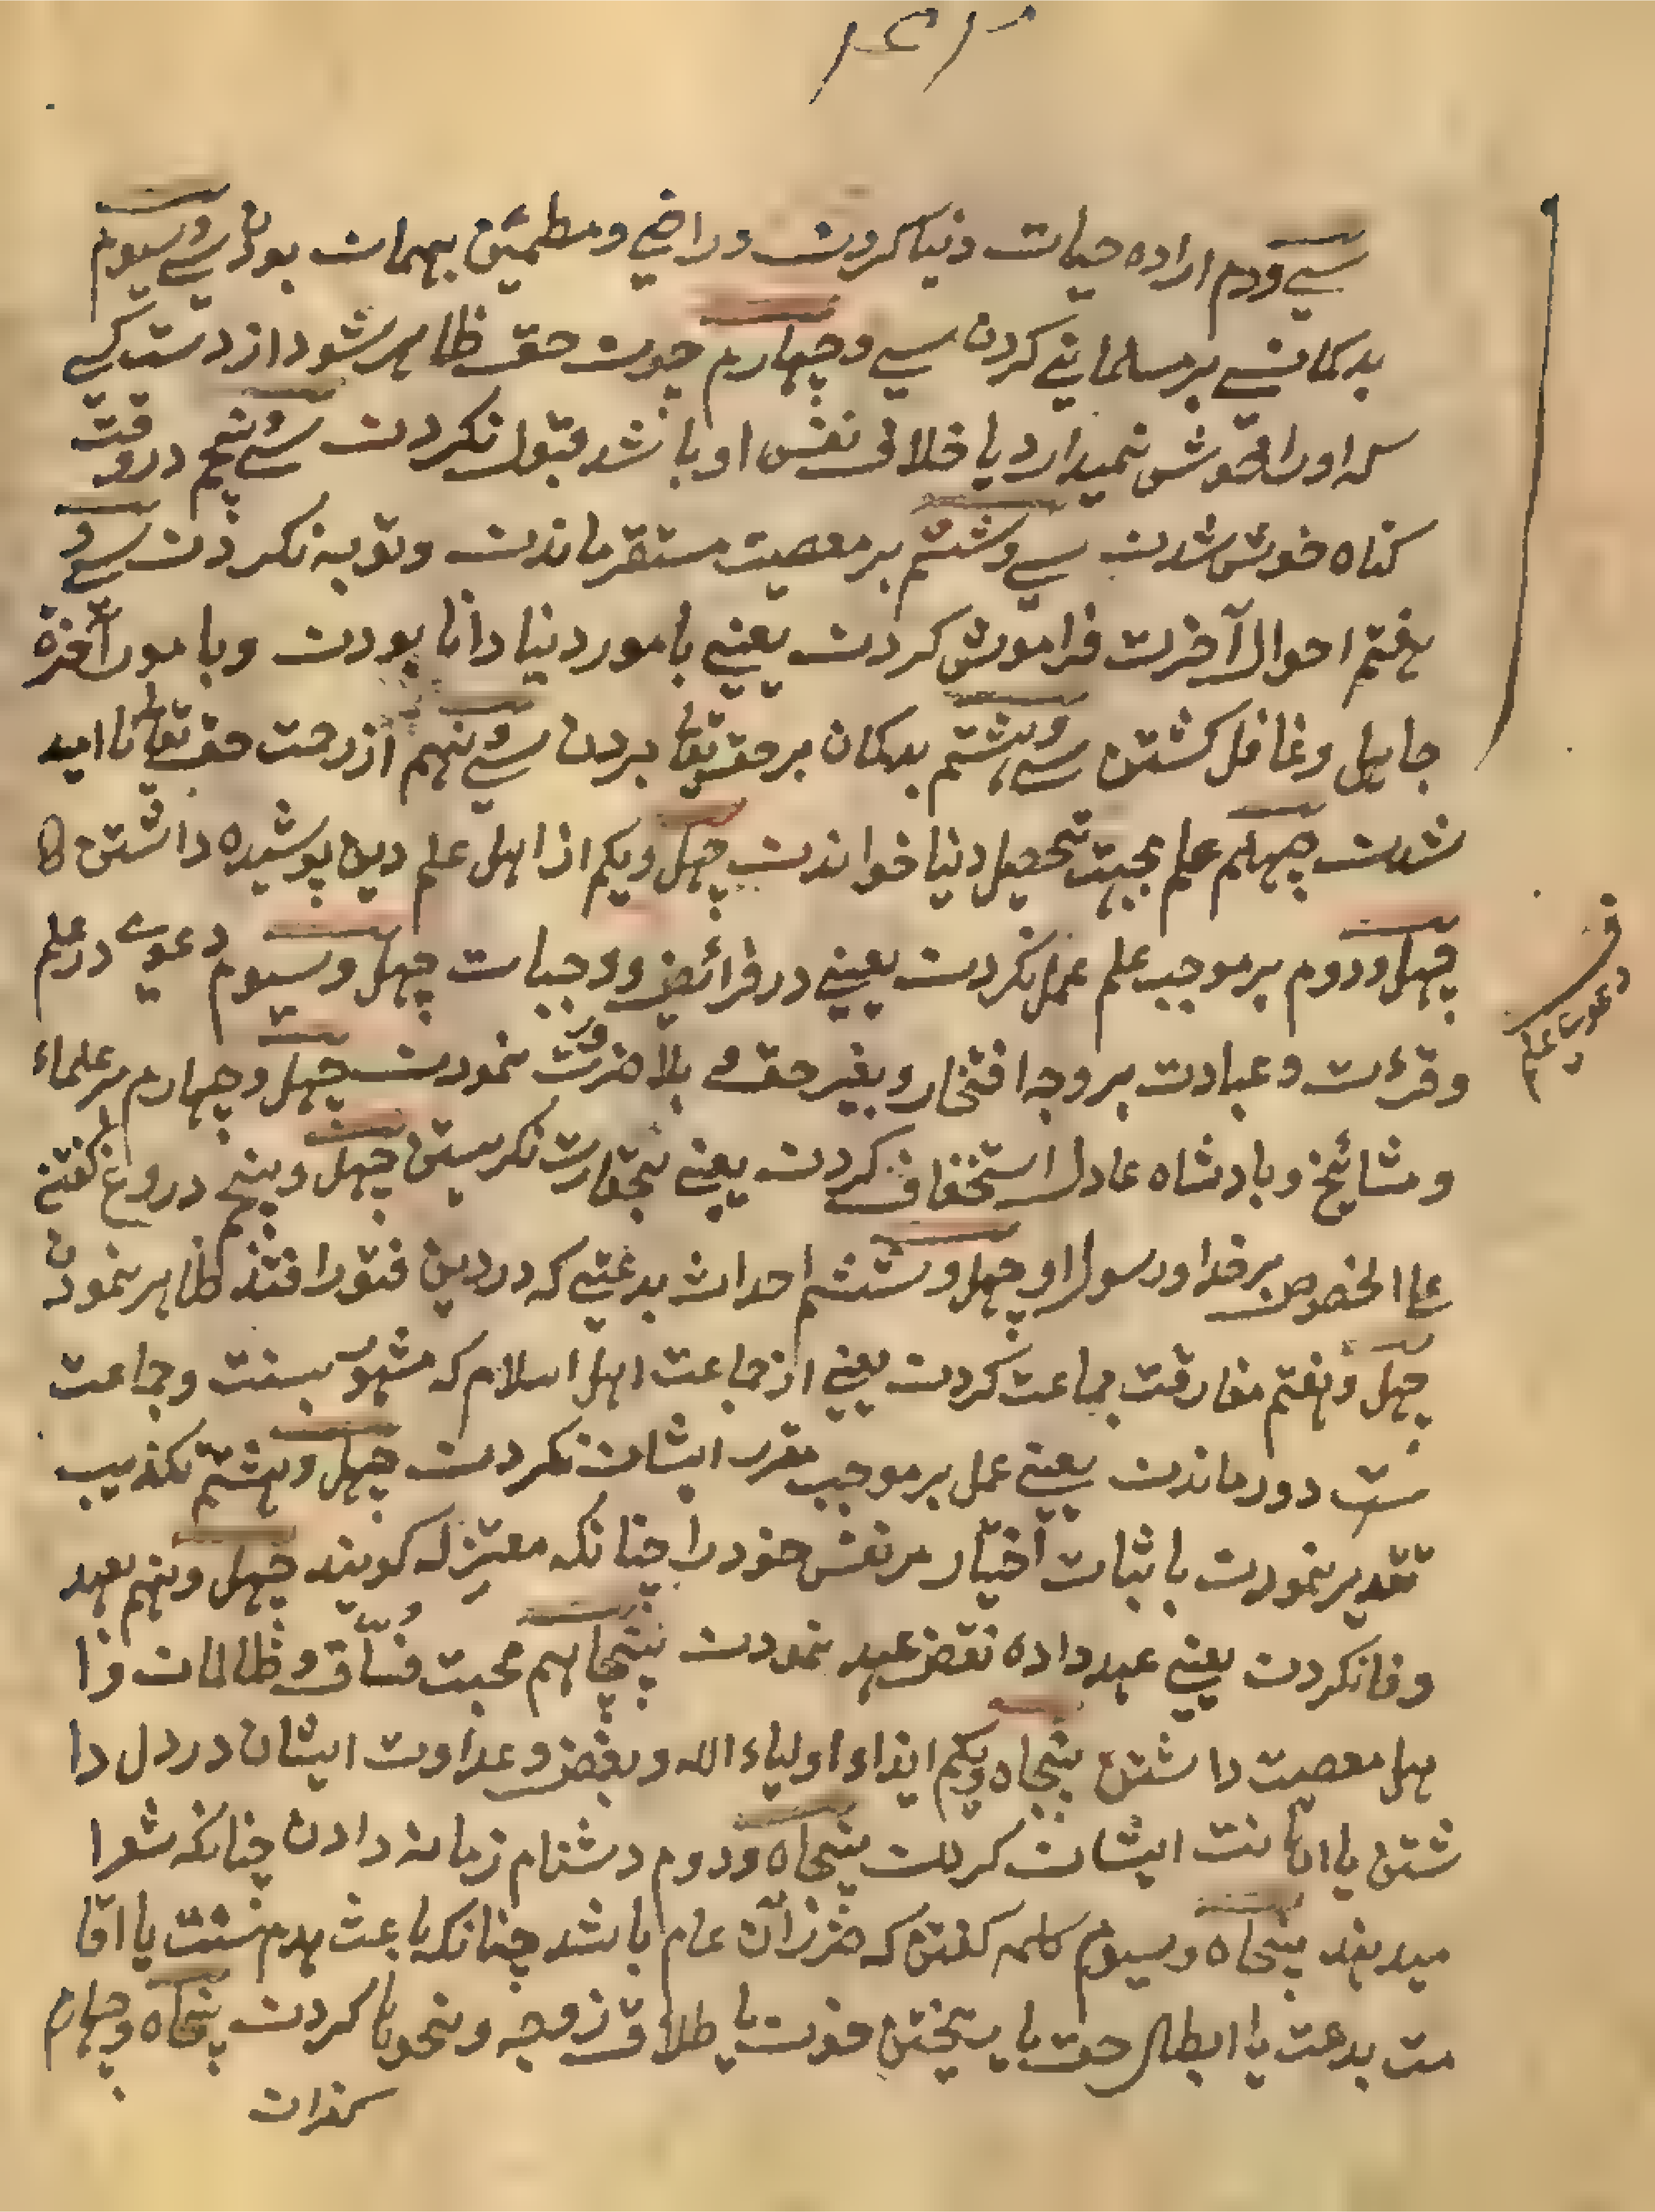 سے ودم اراده حیات دنیا کردن و راضی و مطمئن بهمان بودن سے وسیوم
بدکمانے بر مسلمانے کردن سے وچهارم چون حق ظاهر شود از دست کسے
که او را خوش نمیدارد یا خلاف نفس او باشد قبول نکردن سے وپنجم در وقت
کناه خوش شدن سے وششم بر معصیت مستقر ماندن وتوبه نکردن سے و
هفتم احوال آخرت فراموش کردن یعنے بامور دنیا دانا بودن وبامور آخرة
جاهل وغافل کشتن سے وهشتم بدکمان بر حقتعالے بردن سے ونهم از رحمت حقتعالے نا امید
شدن چهلم علم بجهت تحصیل دنیا خواندن چهل ویکم از اهل علم دین پوشیده داشتن
چهل ودوم بر موجب علم عمل نکردن یعنے در فرائض وواجبات چهل وسیوم دعوے در علم
وقرءت وعبادت بر وجه افتخار وبغیر حق بلا ضرورت نمودن چهل وچهارم بر علماء
ومشائخ وبادشاه عادل استخفاف کردن یعنے بحقارت نکریستن چهل وپنجم دروغ کفتن
علے الخصوص بر خدا ورسول او چهل وششم احداث بدعتے که در دین فتور افتد ظاهر نمودن
چهل وهفتم مفارقت جماعت کردن یعنے از جماعت اهل اسلام که مشهور بسنت وجماعت
ست دور ماندن یعنے عمل بر موجب مقرر ایشان نکردن چهل وهشتم تکذیب
تقدیر نمودن باثبات اختیار مر نفس خود را چنانکه معتزله کویند چهل ونهم بعهد
وفا نکردن یعنے عهد داده نقض عهد نمودن پنجاهم محبت فساق وظالمان وا
هل معصیت داشتن پنجاه ویکم ایذاء اولیاء الله وبغض وعداوت ایشان در دل دا
شتن یا اهانت ایشان کردن پنجاه ودوم دشنام زمانه دادن چنانکه شعرا
میدهند پنجاه وسیوم کلمه کفتن که ضرر آن عام باشد چنانکه باعث هدم سنت یا اقا
مت بدعت یا ابطال حق یا ریختن خون یا طلاق زوجه ونحوها کردن پنجاه وچهارم
کفران
دعوے علم